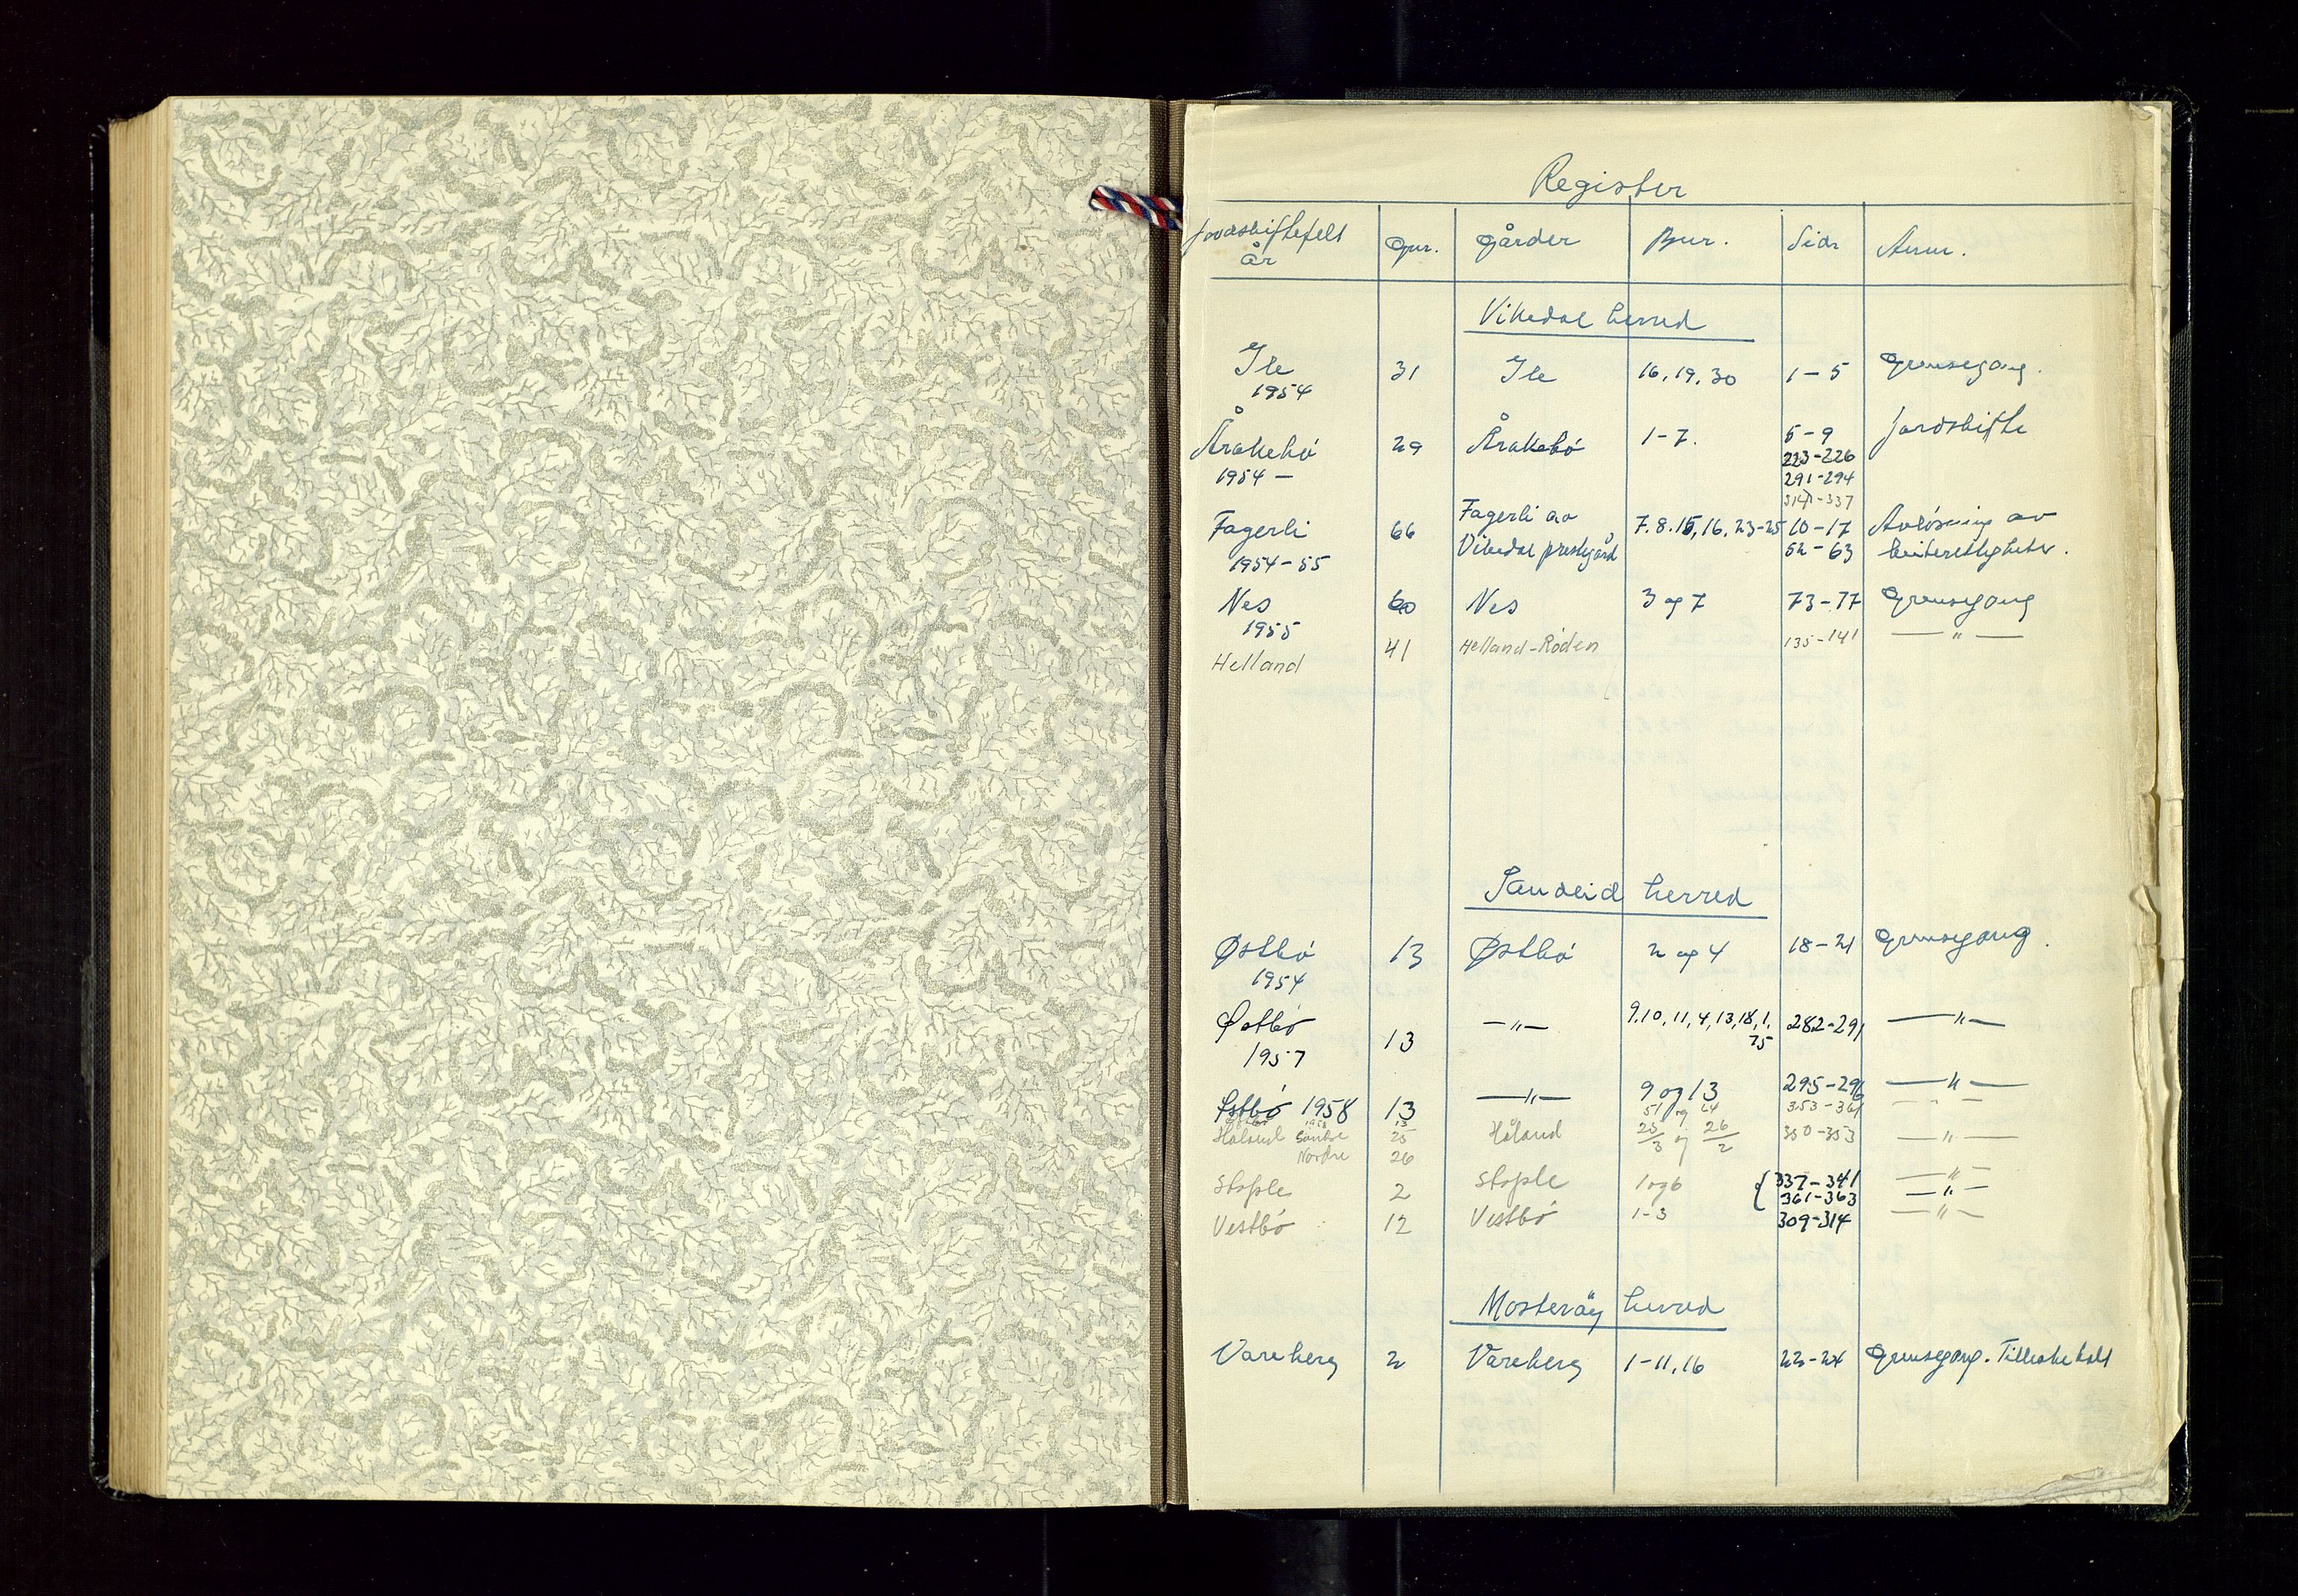 Register
Jordskiftefelt år Gnr. Gårder Bnr. Sider Anm.
Vikedal herred
Ile 31 Ile 16, 19, 30 1-5 Grensegang.
1954
Årakebö 29 Årakebö 1-7. 5-9 Jordskifte
223-226
1954 — 291-294
-337
Fagerli 66 Fagerli av 7. 8. 15, 16, 23-25 10-17 Avlösning av
Vikedal prestegård 52-63 beiterettigheter.
1954-55
Nes 60 Nes 3 og 7 73-77 Grensegang
1955
Helland 41 Helland-Röden 135-141 —"—
Sandeid herred
Østbö 13 Østbö 2 og 4 18-21 Grensegang.
1954
Østbö 13 —"— 9, 10, 11, 4, 13, 18, 1, 75 282-291 —"—
1957
Østbö 1958 13 —"— 9 og 13 295-296 —"—
1958 13 51 og 64 353-361 —"—
Höland Söndre 25 Höland 25/3 og 26/2 350-353 —"—
Nordre 26
Stople 2 Stople 1 og 6 { 337-341 —"—
361-363 —"—
Vestbö 12 Vestbö 1-3 309-314 —"—
Mosteröy herred
Vareberg 2 Vareberg 1-11, 16 22-24 Grensegang. Tilbakekalt